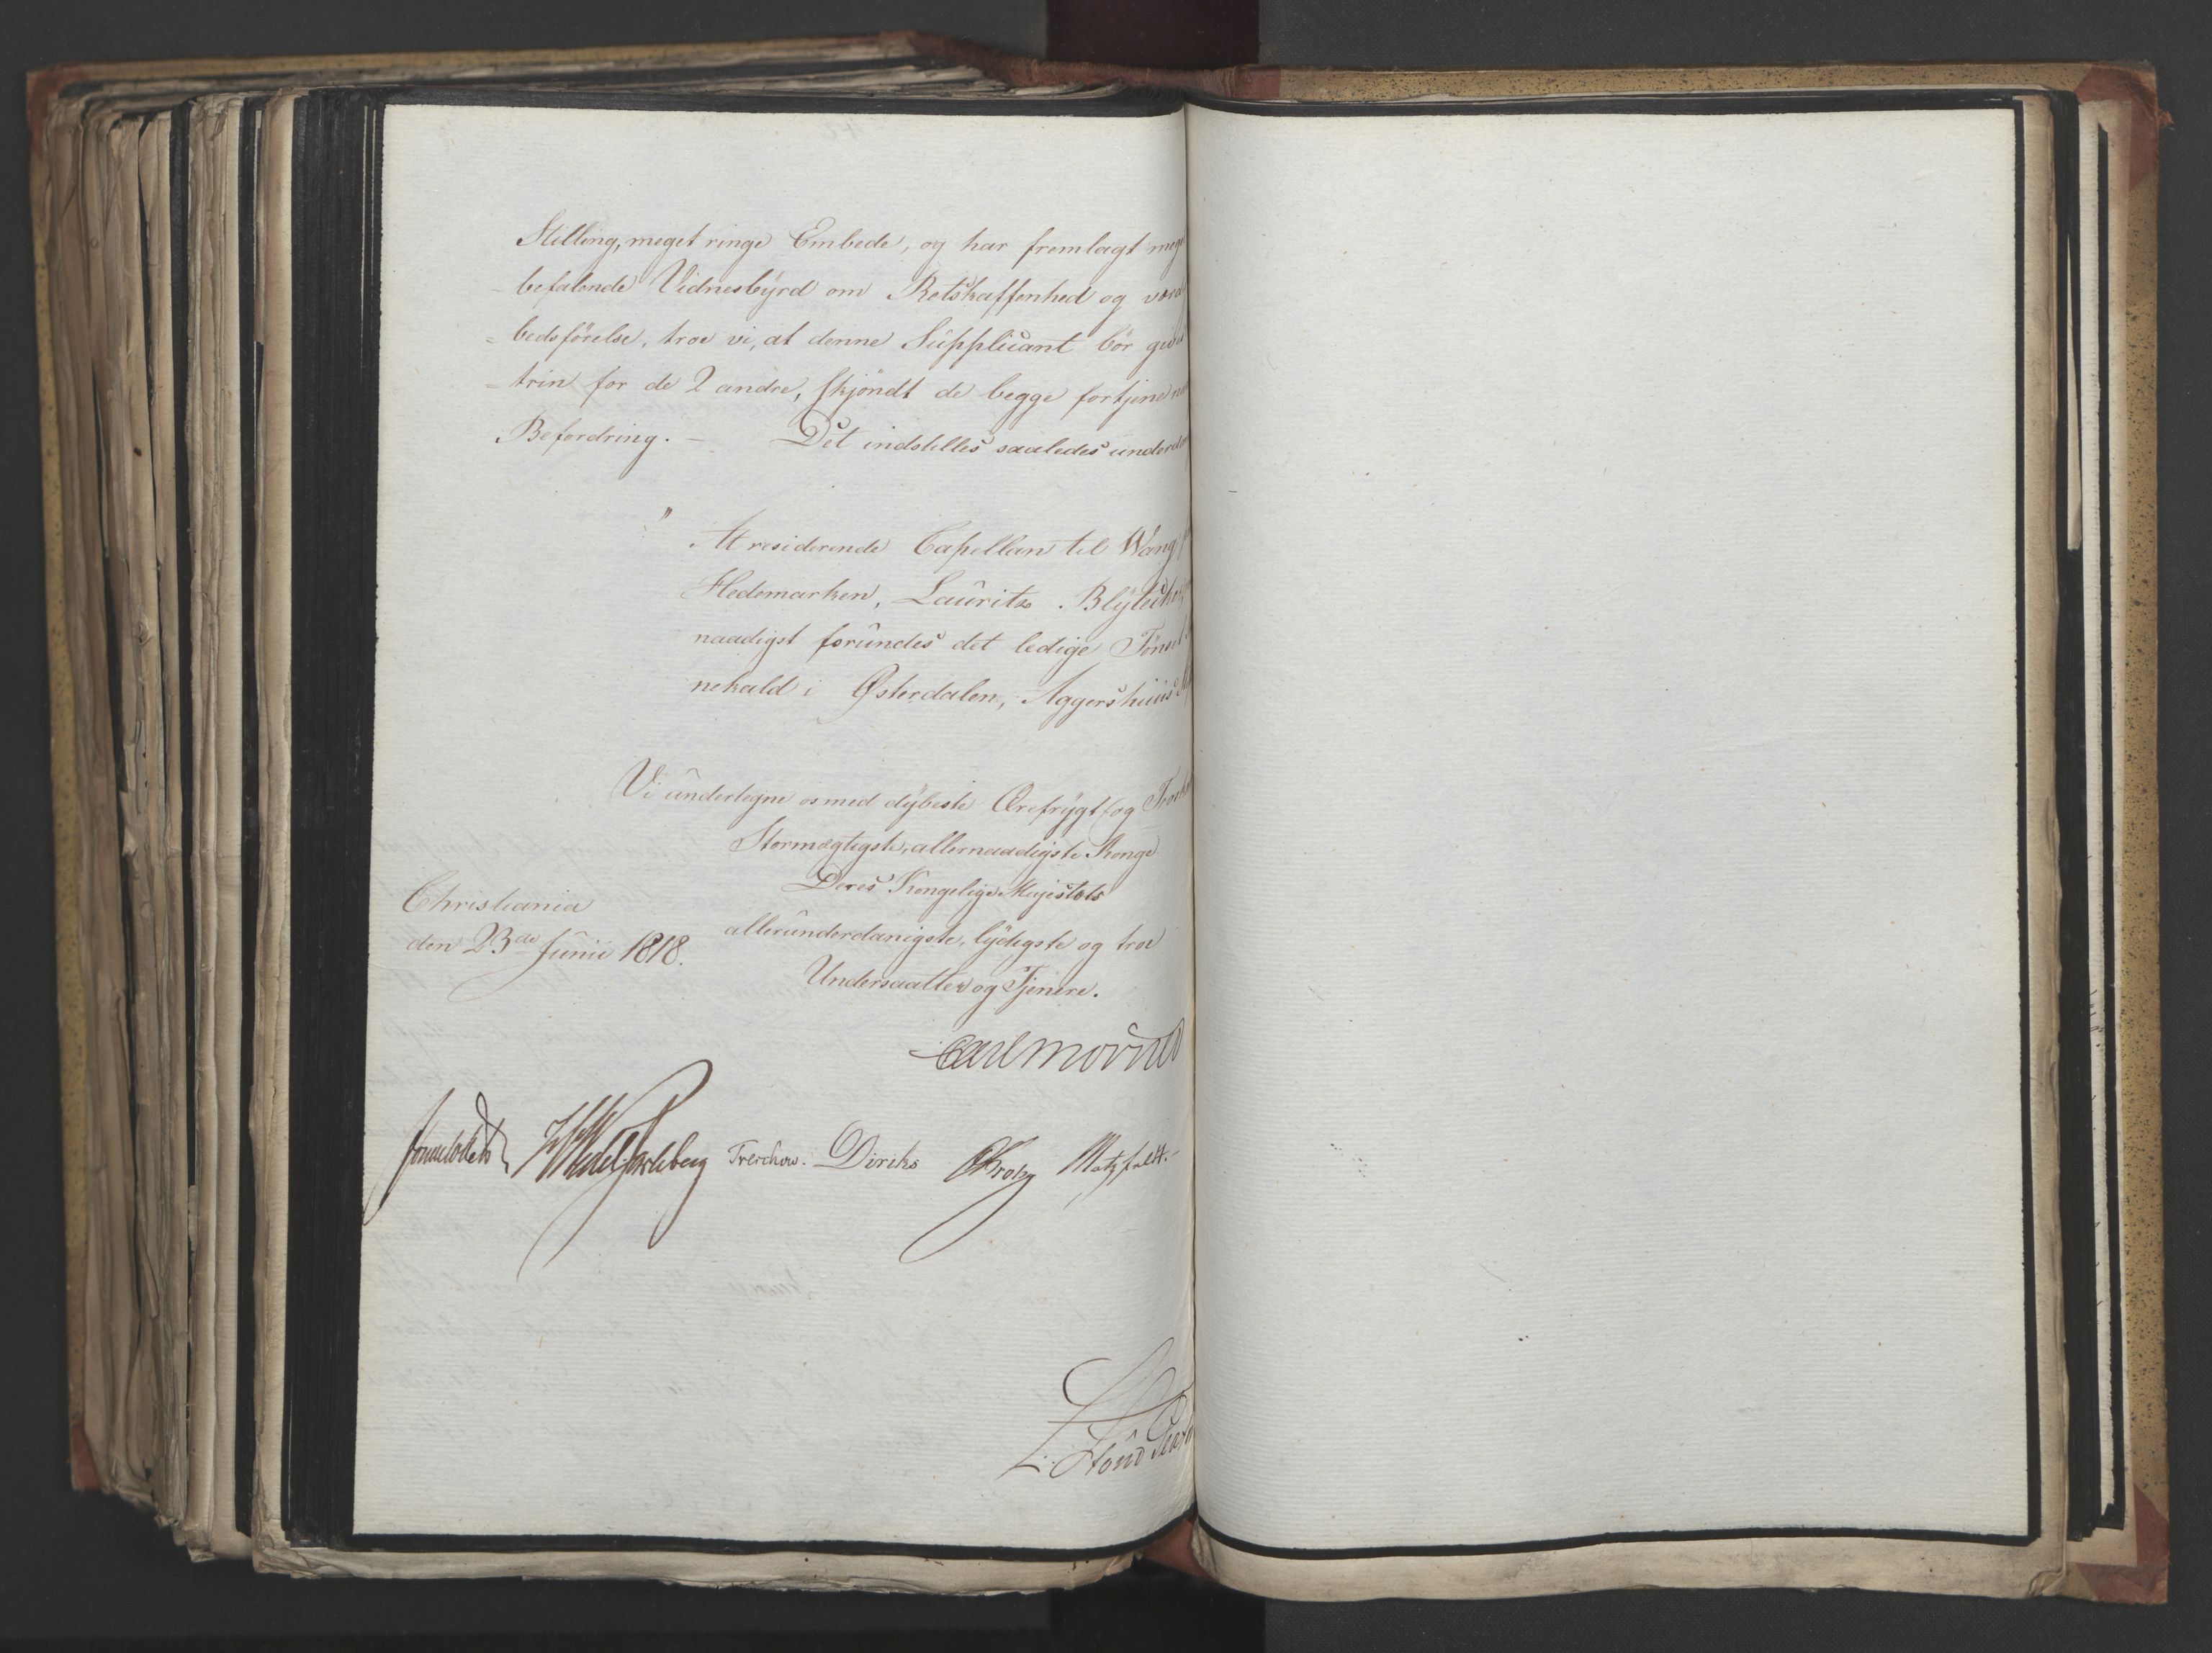 Stilling, meget ringe Embede, og har fremlagt meg
- befalende Vidnesbyrd om Retskaffenhed og værd
= bedsförelse, troe vi, at denne Suppliant bör gives
- trin for de 2 andre, skjöndt de begge fortjene
Befordring. — Det indstilles saaledes underd
" At residerende Capellan til Wang
Hedemarken, Lauritz Blÿtecker,
naadigst forundes det ledige Tönset
nekald i Østerdalen, Aggershuus
Vi undertegne os med dÿbeste Ærefrÿgt og Troskab
Stormægtigste, allernaadigste Konge
Deres Kongelige Majestæts
allerunderdanigste, lÿdigste og troe
Undersaatter og Tjenere.
Christiania
den 23de Junii 1818.
Carl Mörner
Sommerhielm HWedelJarlsberg Treschow. Diriks CKrohg Motzfeldt.